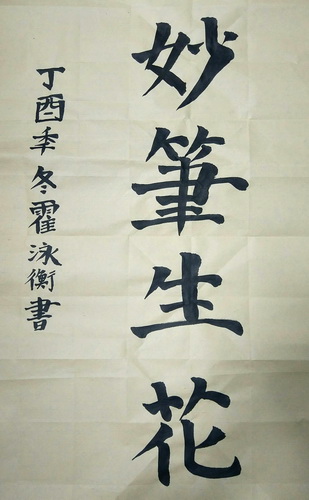 妙筆生花
丁酉季冬霍泳衡書